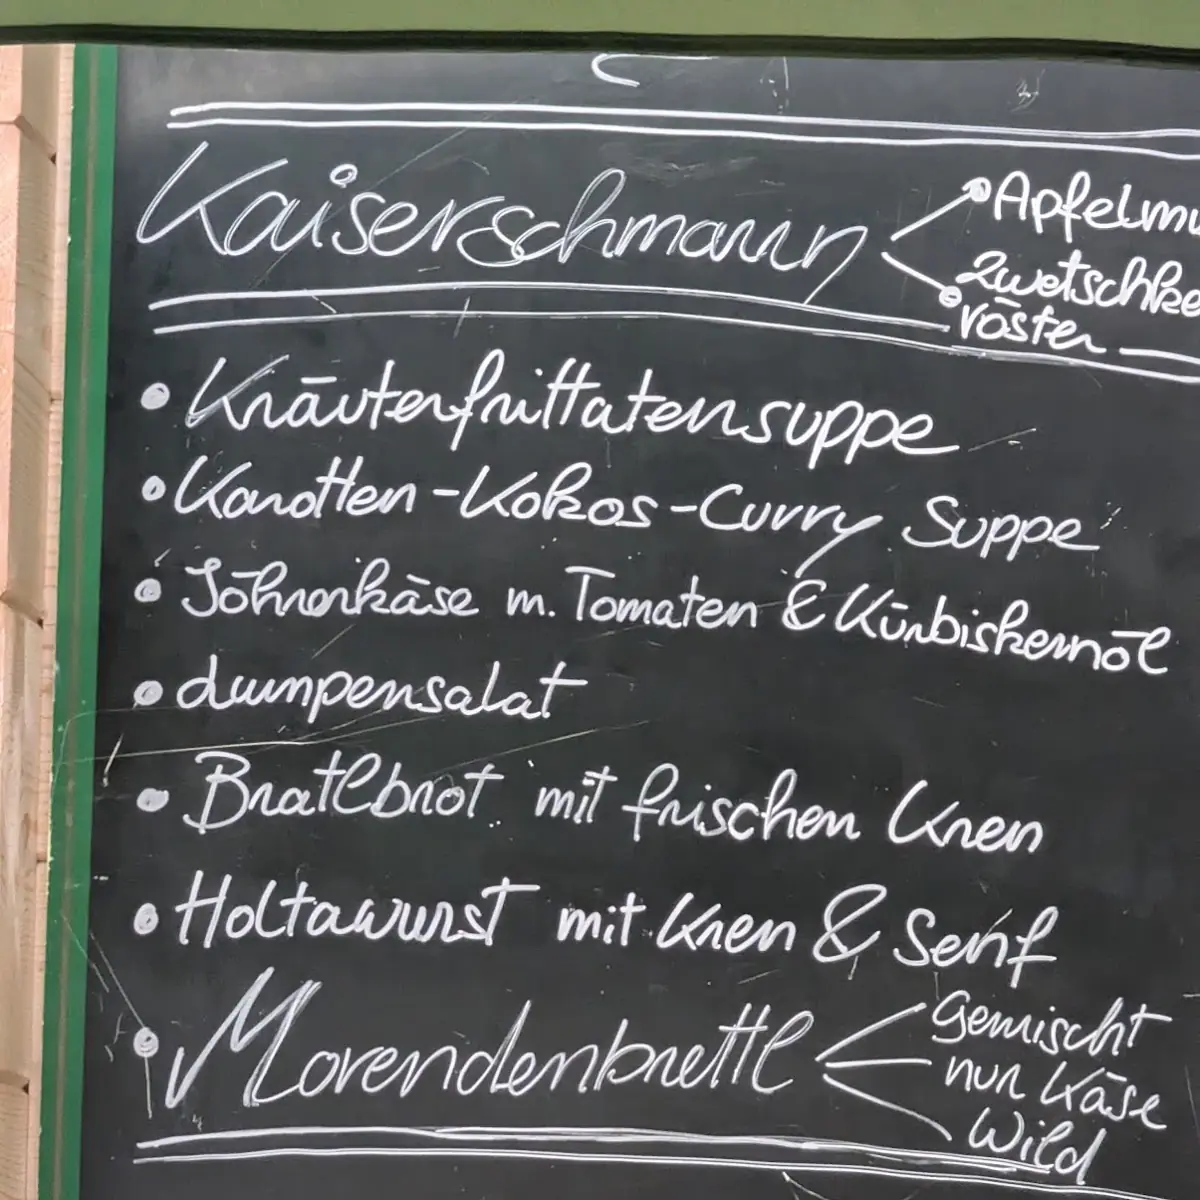 Kaiserschmarrn
Apfelmu
Zwetschke
röster
Kräuterfrittatensuppe
Karotten-Kokos-Curry Suppe
Söhrerkäse m. Tomaten & Kürbiskernöl
Lumpensalat
Bratlbrot mit frischen Kren
Holtawurst mit Kren & Senf
Marendenbrettl
gemischt
nur Käse
Wild